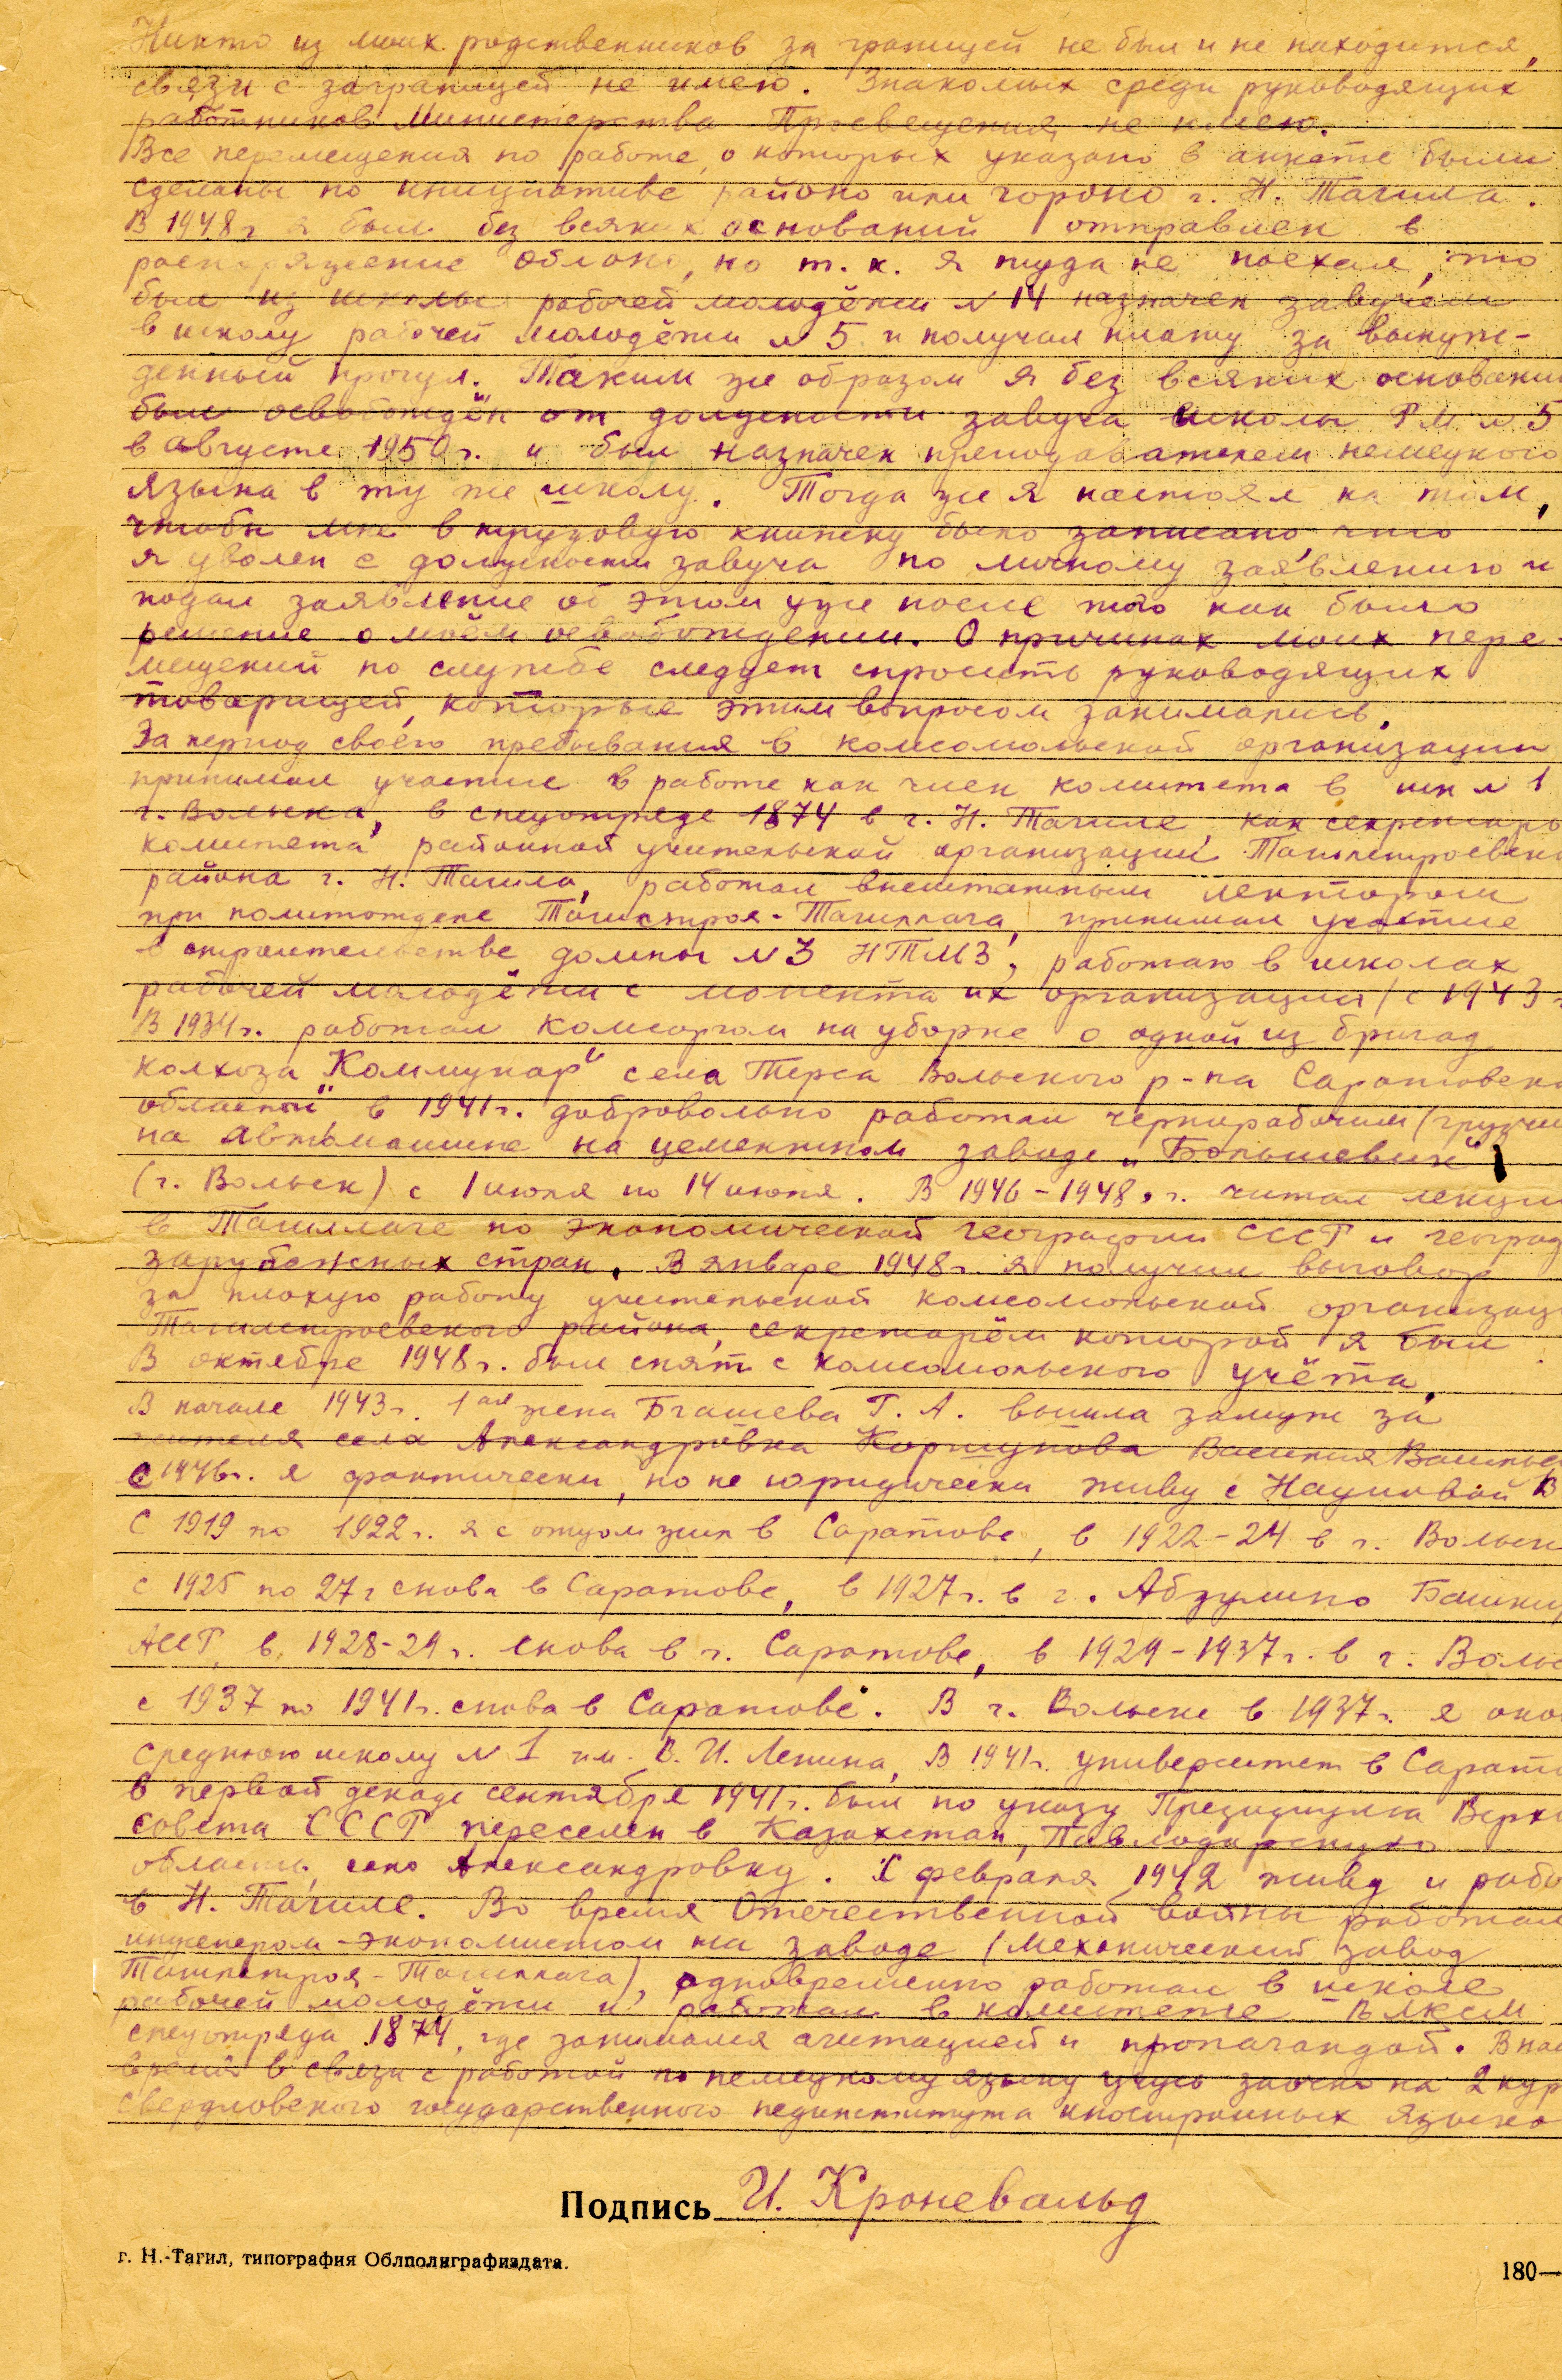 Никто из моих родственников за границей не был и не находится,
связи с заграницей не имею. Знакомых среди руководящих
работников Министерства Просвещения не имею.
Все перемещения по работе, о которых указано в анкете были
сделаны по инициативе районо или гороно г. Н. Тагила.
В 1948 г я был без всяких оснований отправлен в
распоряжение Облоно, но т. к. я туда не поехал, то
был из школы рабочей молодёжи № 14 назначен завучем
в школу рабочей молодёжи № 5 и получил плату за вынуж-
денный прогул. Таким же образом я без всяких оснований
был освобождён от должности завуча школы РМ № 5
в августе 1950 г. и был назначен преподавателем немецкого
языка в ту же школу. Тогда же я настоял на том,
чтобы мне в трудовую книжку было записано, что
я уволен с должности завуча по личному заявлению и
подал заявление об этом уже после того как было
решение о моём освобождении. О причинах моих пере-
мещений по службе следует спросить руководящих
товарищей, которые этим вопросом занимались.
За период своего пребывания в комсомольской организации
принимал участие в работе как член комитета в шк № 1
г. Вольска, в спецотряде 1874 в г. Н. Тагиле, как секретарь
комитета районной учительской организации Тагилстроевско
района г. Н. Тагила, работал внештатным лектором
при политотделе Тагилстроя-Тагиллага, принимал участие
в строительстве домны № 3 НТМЗ, работаю в школах
рабочей молодёжи с момента их организации (с 1943 г
В 1934 г. работал комсоргом на уборке в одной из бригад
колхоза "Коммунар" села Терса Вольского р-на Саратовско
области в 1941 г. добровольно работал чернорабочим (грузчи
на автомашине на цементном заводе "Большевик"
(г. Вольск) с 1 июля по 14 июля. В 1946-1948 г. читал лекции
в Тагиллаге по экономической географии СССР и географ
зарубежных стран. В январе 1948 г. я получил выговор
за плохую работу учительской комсомольской организац
Тагилстроевского района, секретарём которой я был
В октябре 1948 г. был снят с комсомольского учёта.
В начале 1943 г. 1ая жена Бгашева Г. А. вышла замуж за
жителя села Александровка Коршунова Василия Василье
с 1946 г. я фактически, но не юридически живу с Наумовой В
С 1919 по 1922 г. я с отцом жил в Саратове, в 1922-24 в г. Вольск
с 1925 по 27 г снова в Саратове, в 1927 г. в г. Абзулино Башки
АССР, в 1928-29 г. снова в г. Саратове, в 1929-1937 г. в г. Вольс
с 1937 по 1941 г. снова в Саратове. В г. Вольске в 1937 г. я око
среднюю школу № 1 им. В. И. Ленина, В 1941 г. университет в Сарат
В первой декаде сентября 1941 г. был по указу Президиума Верх
совета СССР переселен в Казахстан, Павлодарскую
область, село Александровку. С февраля 1942 живу и рабо
в Н. Тагиле. Во время Отечественной войны работал
инженером-экономистом на заводе (механический завод
Тагилстроя-Тагиллага), одновременно работал в школе
рабочей молодёжи и работал в комитете ВЛКСМ
спецотряда 1874, где занимался агитацией и пропагандой. В нас
время в связи с работой по немецкому языку учусь заочно на 2 кур
Свердловского государственного пединститута иностранных языко
Подпись И. Кроневальд
г. Н.-Тагил, типография Облполиграфиздата.
180—